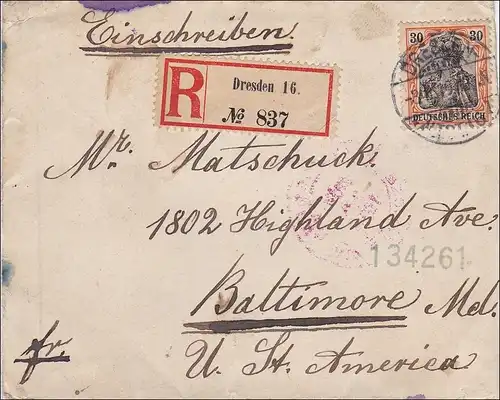 Einschreiben.
30 30
DRESDEN
DEUTSCHES REICH
R
Dresden 16.
№ 837
Mr. Matschuck.
1802 Highland Ave.
134261
Baltimore Md.
fr.
U. St. America